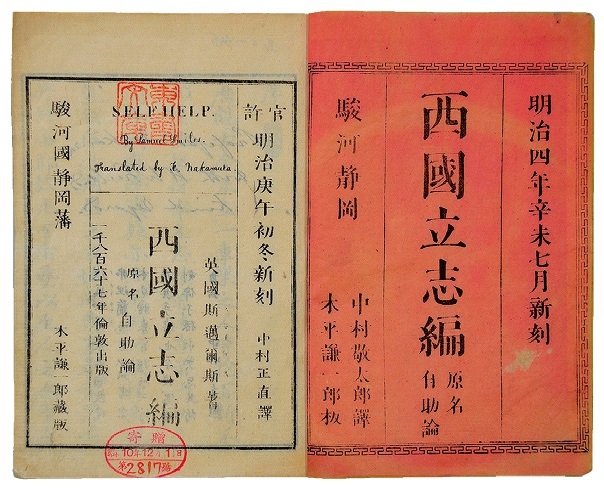 明治四年辛未七月新刻
西國立志編
原名
自助論
駿河静岡
中村敬太郎譯
木平謙一郎板
官許
明治庚午初冬新刻
中村正直譯
SELF-HELP.
By Samuel Smiles.
Translated by K. Nakamura.
英國斯邁爾斯著
西國立志編
原名
自助論
一千八百六十七年倫敦出版
駿河國静岡藩
木平謙一郎藏版
寄贈
10年12月1日
第2817號